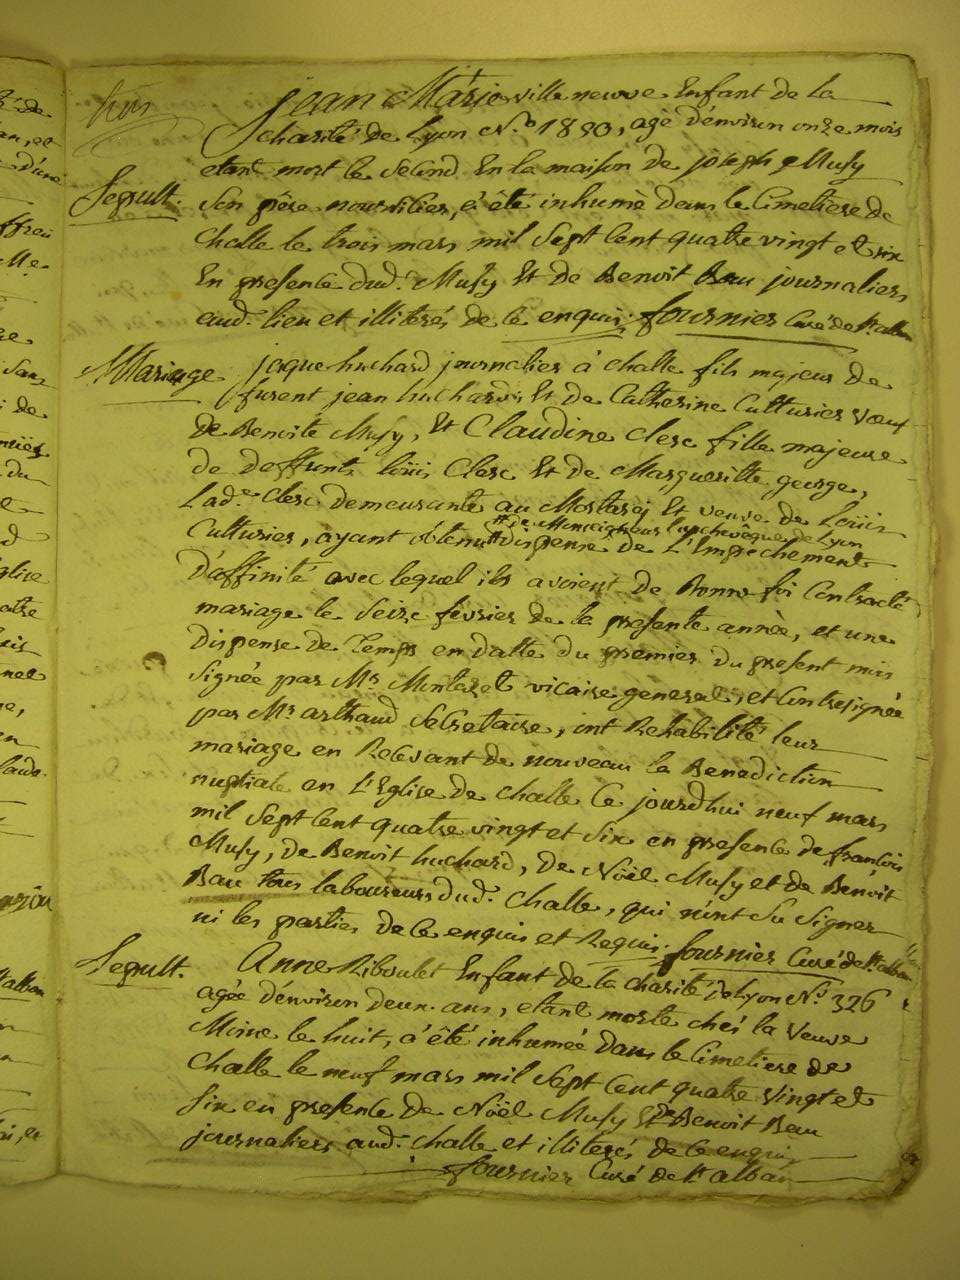 trois
Jean Marie ville neuve Enfant de la
charité de Lyon N.º 1890, agé d'environ onze mois
etant mort le second En la maison de joseph Musy
Sepult. Son père nourricier, a été inhumé dans le Cimetiere de
Challe le trois mars mil Sept Cent quatre vingt et six
En presence dud. Musy Et de Benoit Beau journaliers
aud. lieu et illiterés de ce enquis. fournier Curé de St alban
Mariage jaque huchard journalier à Challe fils majeur de
furent jean huchard, Et de Catherine Cutturier veuf
de Benoite Musy, Et Claudine clerc fille majeure
de deffunts loüis Clerc Et de Margueritte george,
Lad.e Clerc demeurante au Mostaroj Et veuve de Loüis
# de Monseigneur l'archevêque de Lyon
Cutturier, ayant obtenu # dispense de L'Empechement
D'affinité avec lequel ils avoient de Bonne foi Contracté
mariage le seize fevrier de la presente année, et une
dispense de Temps en datte du premier du present mois
Signée par Mr Montaret vicaire general, et Contresignée
par Mr. arthaud Secretaire, ont Rehabilité leur
mariage en Recevant de nouveau la Benediction
nuptiale en L'Eglise de Challe Ce jourdhui neuf mars
mil Sept Cent quatre vingt et Six en presence de françois
Musy, de Benoit huchard, de Noël Musy et de Benoit
Bau tous laboureurs dud. Challe, qui n'ont Su Signer
ni les parties de ce enquis et Requis. fournier Curé de St alban
Sepult. Anne Riboulet Enfant de la charité de Lyon N.º 326
agée d'environ deux ans, etant morte chés la Veuve
Moine le huit, a été inhumée dans le Cimetiere de
Challe le neuf mars mil Sept Cent quatre Vingt et
Six en presence de Noël Musy Et de Benoit Beau
journaliers aud. Challe et illiterés de ce enquis
fournier Curé de St alban